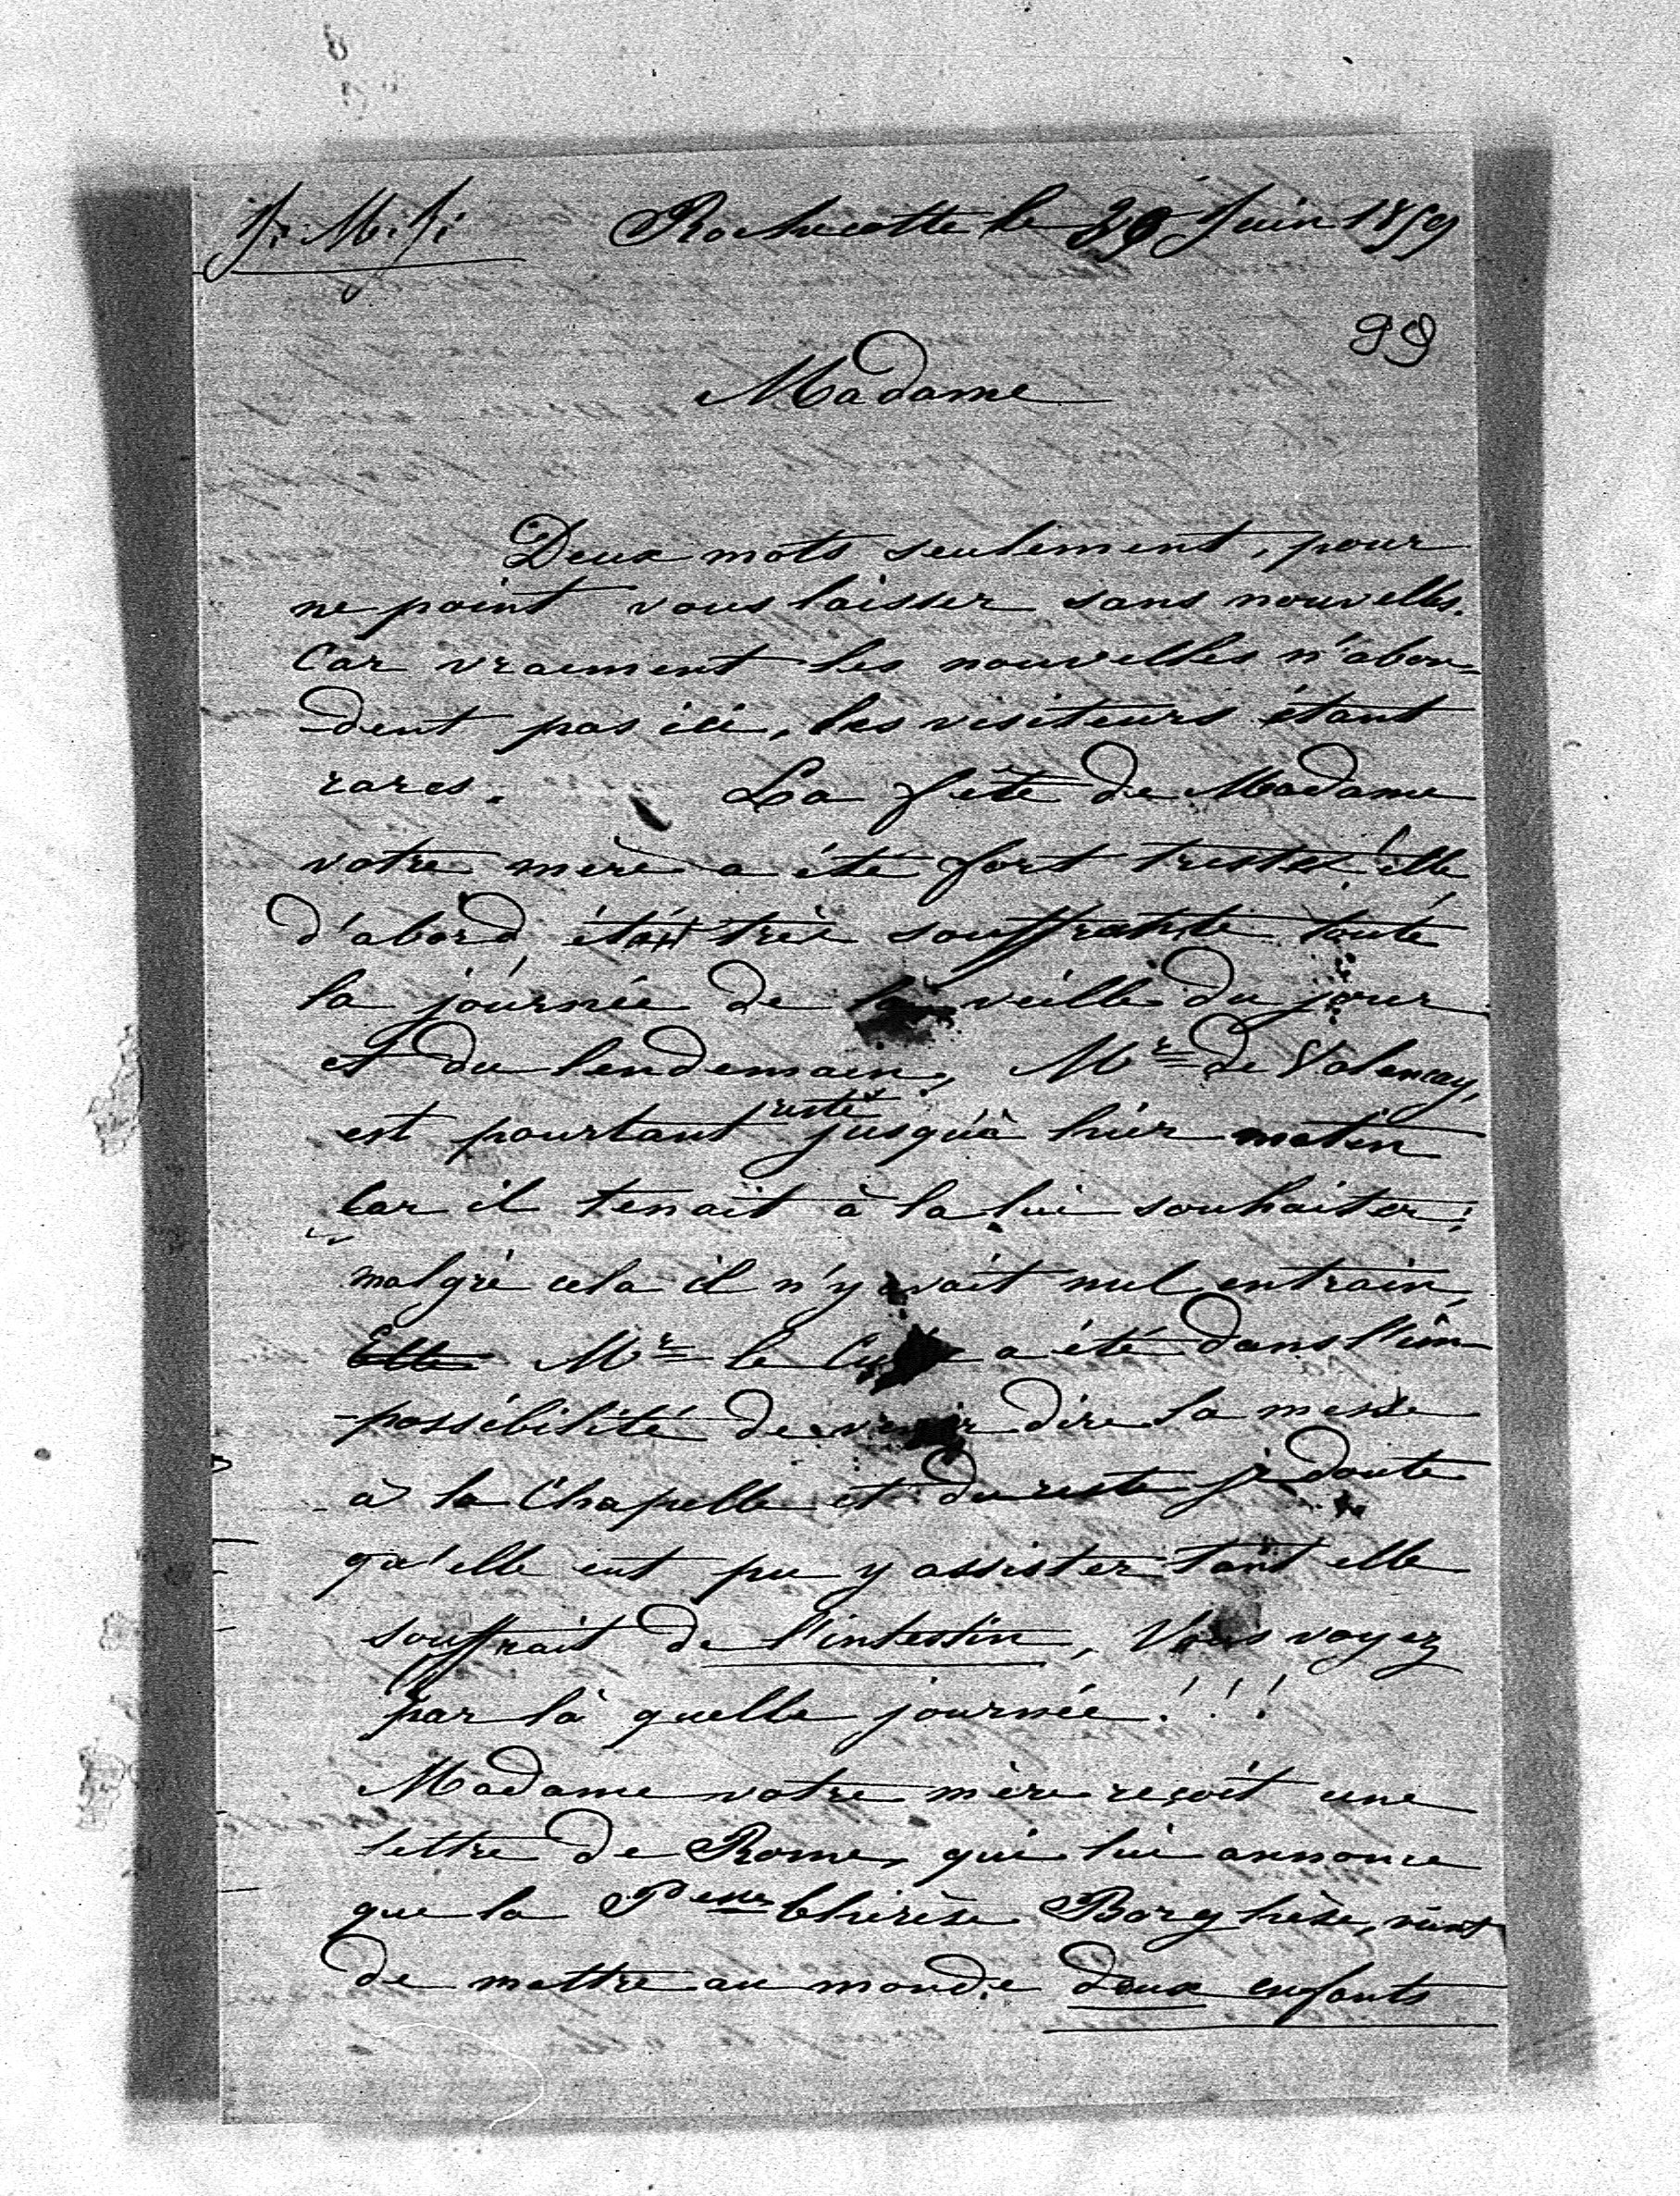 J. M. J. Rochecotte le 29 Juin 1859
99
Madame
Deux mots seulement, pour
ne point vous laisser sans nouvelles.
Car vraiment les nouvelles n'abon-
-dent pas ici, les visiteurs étant
rares. La fête de Madame
votre mère a été fort triste, elle
d'abord était très souffrante toute
la journée de la veille du jour
et du lendemain, Mr de Valençay,
est pourtant resté jusqu'à hier matin
Car il tenait à la lui souhaiter;
malgré cela il n'y avait nul entrain,
Elle Mr le Curé a été dans l'im-
-possibilité de venir dire la messe
à la Chapelle et du reste je doute
qu'elle eut pu y assister tant elle
souffrait de l'intestin, Vous voyez
par là quelle journée!!!
Madame votre mère reçoit une
lettre de Rome, qui lui annonce
que la Pesse Thérèse Borghèse, vient
de mettre au monde deux enfants